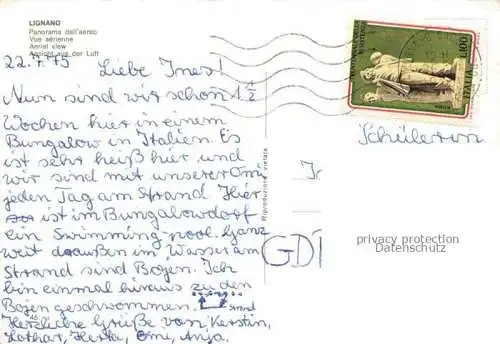 LIGNANO
Panorama dall'aereo
Vue aérienne
Aerial view
Ansicht aus der Luft
22.7.75 Liebe Ines!
Nun sind wir schon 1 1/2
Wochen hier in einem
Bungalow in Italien. Es
ist sehr heiß hier und
wir sind mit unserer Omi
jeden Tag am Strand. Hier
ist im Bungalowdorf
ein Swimming-pool. Ganz
weit draußen im Wasser am
Strand sind Bojen. Ich
bin einmal hinaus zu den
Bojen geschwommen.
Strand
Herzliche Grüße von, Kerstin,
Lothar, Herta, Omi, Anja.
Riproduzione vietata
ITALIA 100
Schülerin
privacy protection
Datenschutz